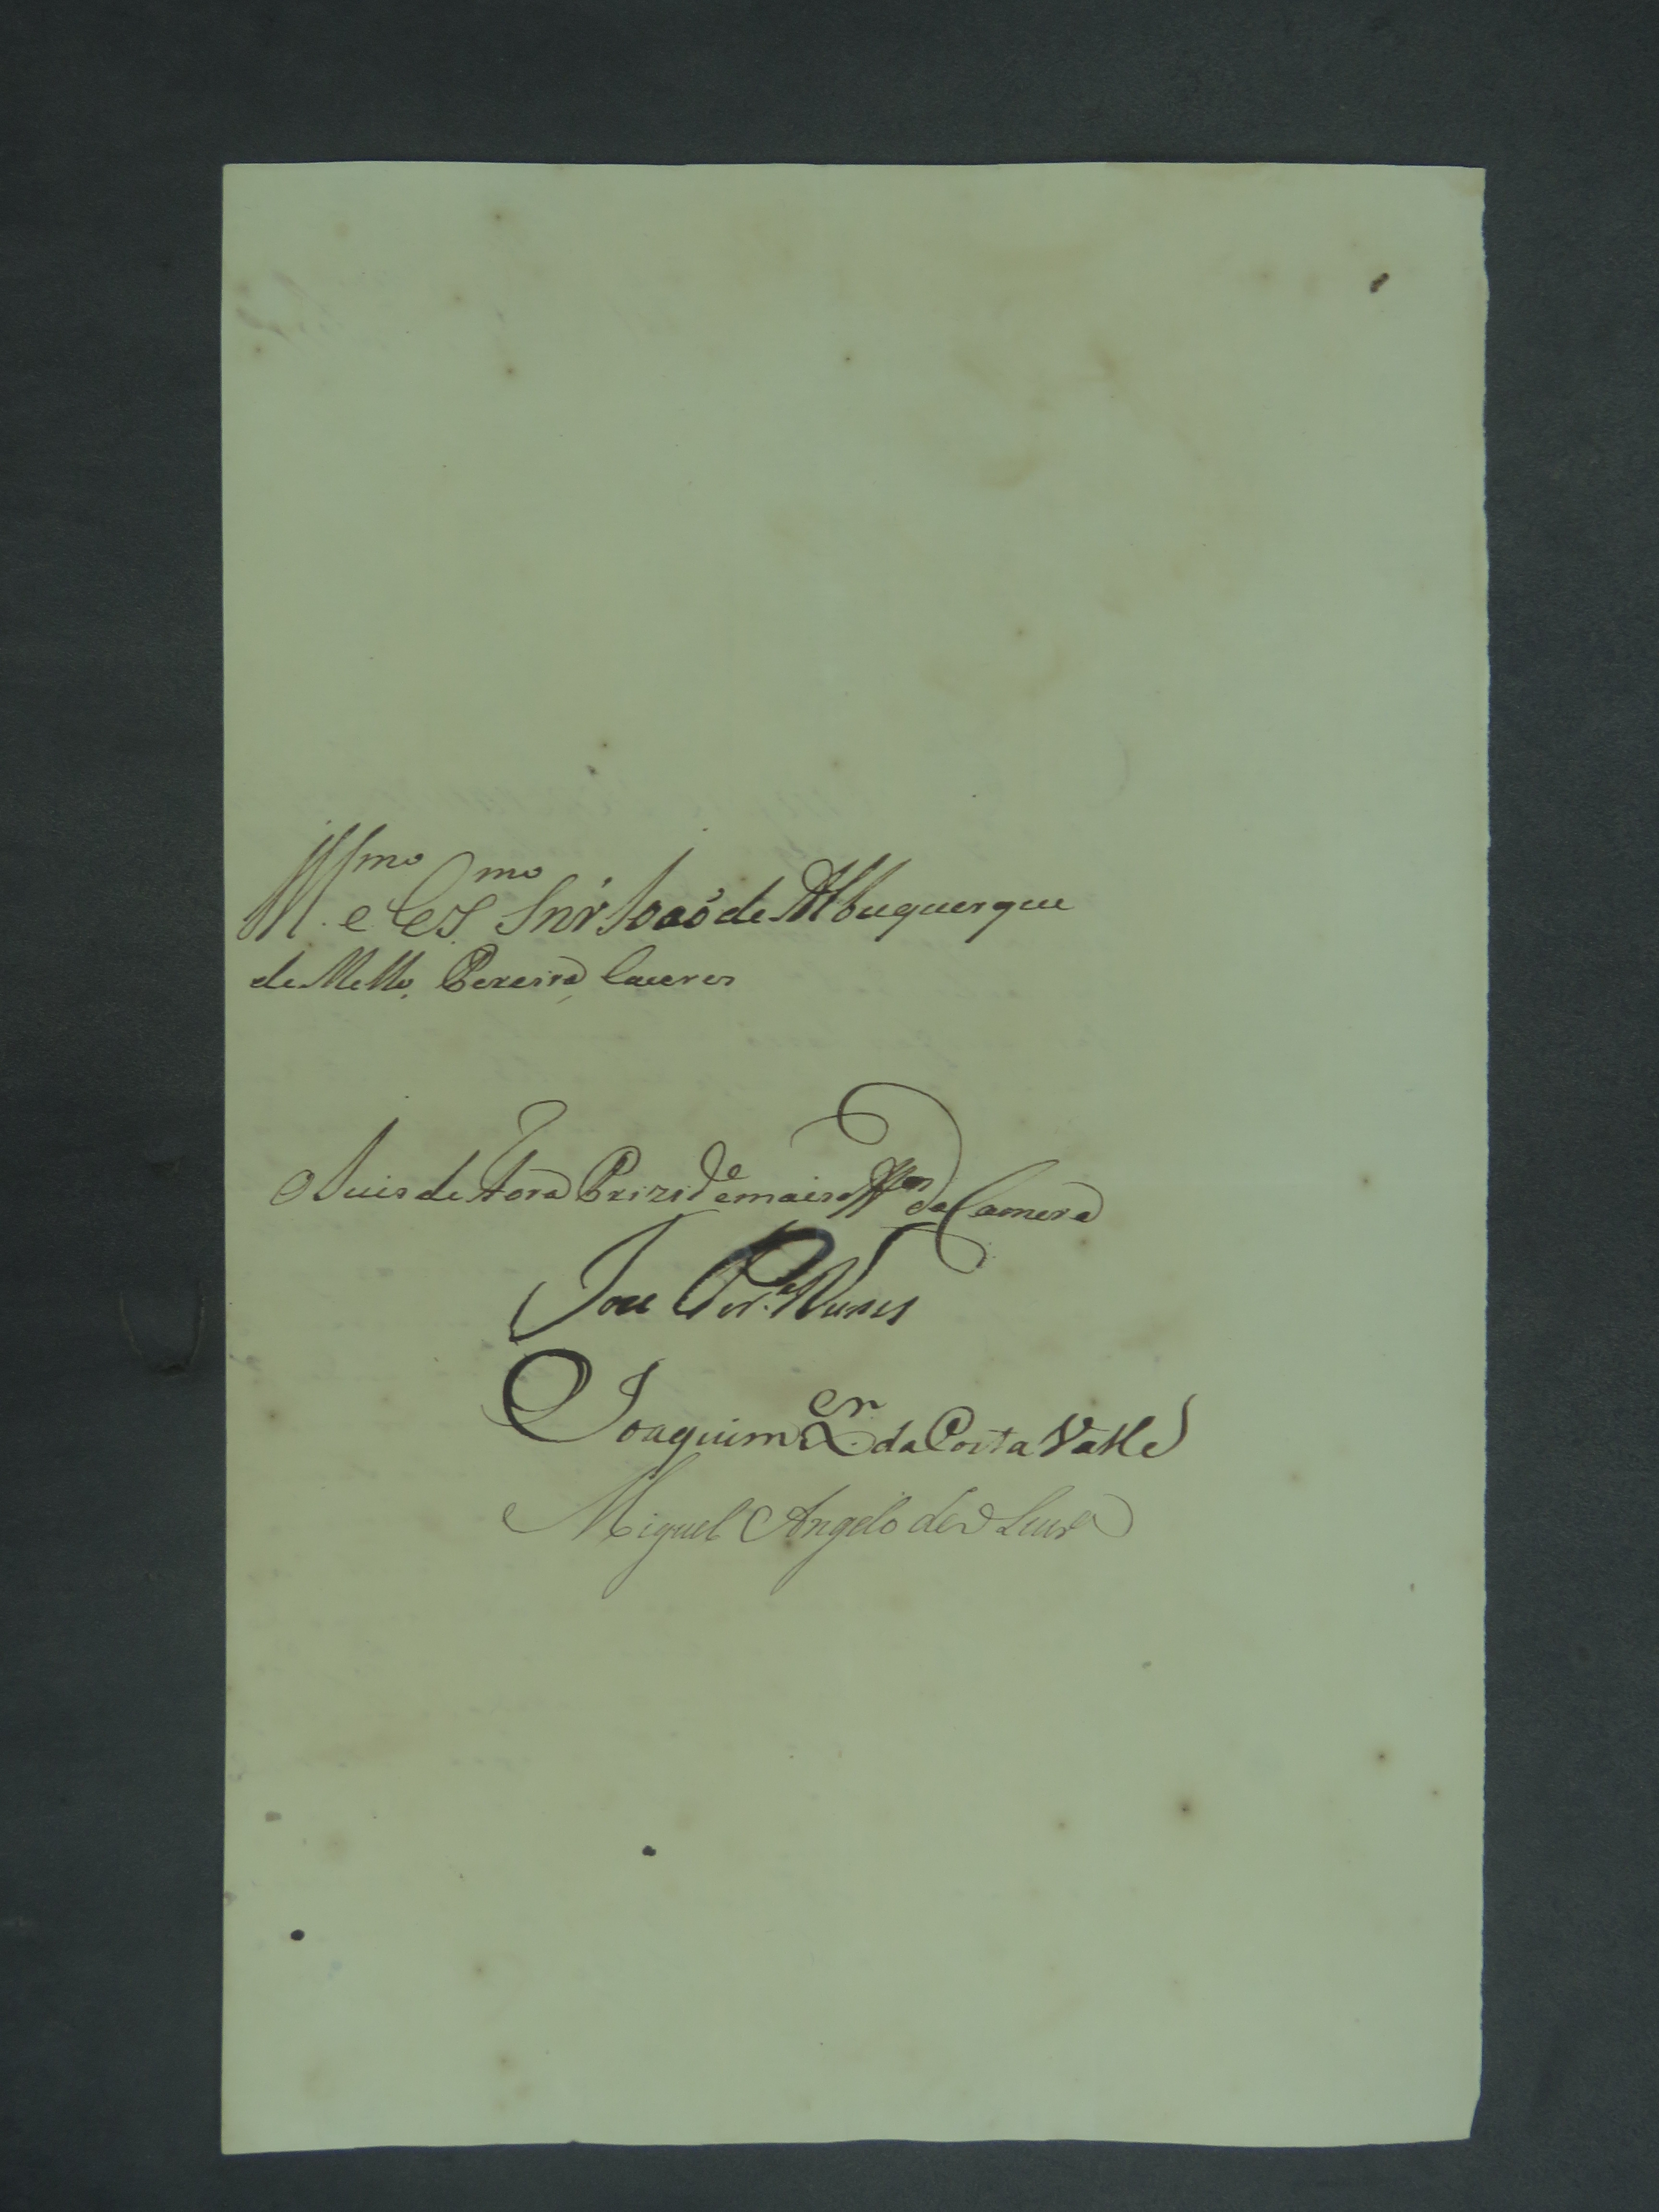 Illmo. e Exmo. Snr' Joaõ de Albuquerque
de Mello, Pereira, Caceres
O Juis de Fora Prizide e mais Offes da Camera
Joze Per.a Nunes
Joaquim da Costa Valle
Miguel Angelo de